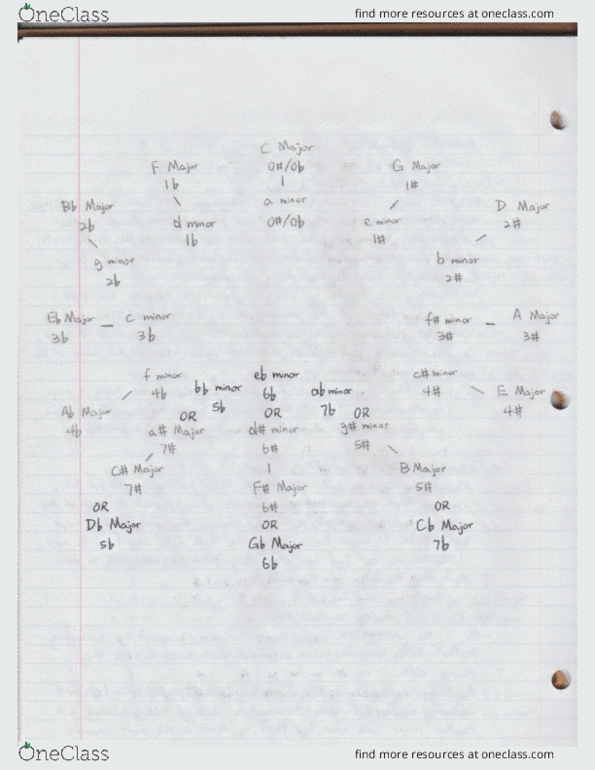 OneClass
find more resources at oneclass.com
C Major
0#/0b
a minor
0#/0b
F Major
1b
d minor
1b
G Major
1#
e minor
1#
Bb Major
2b
g minor
2b
D Major
2#
b minor
2#
Eb Major – c minor
3b 3b
f# minor – A Major
3# 3#
f minor
4b
Ab Major
4b
c# minor
4#
E Major
4#
bb minor
5b
OR
a# Major
7#
C# Major
7#
OR
Db Major
5b
eb minor
6b
OR
d# minor
6#
F# Major
6#
OR
Gb Major
6b
ab minor
7b OR
g# minor
5#
B Major
5#
OR
Cb Major
7b
OneClass
find more resources at oneclass.com